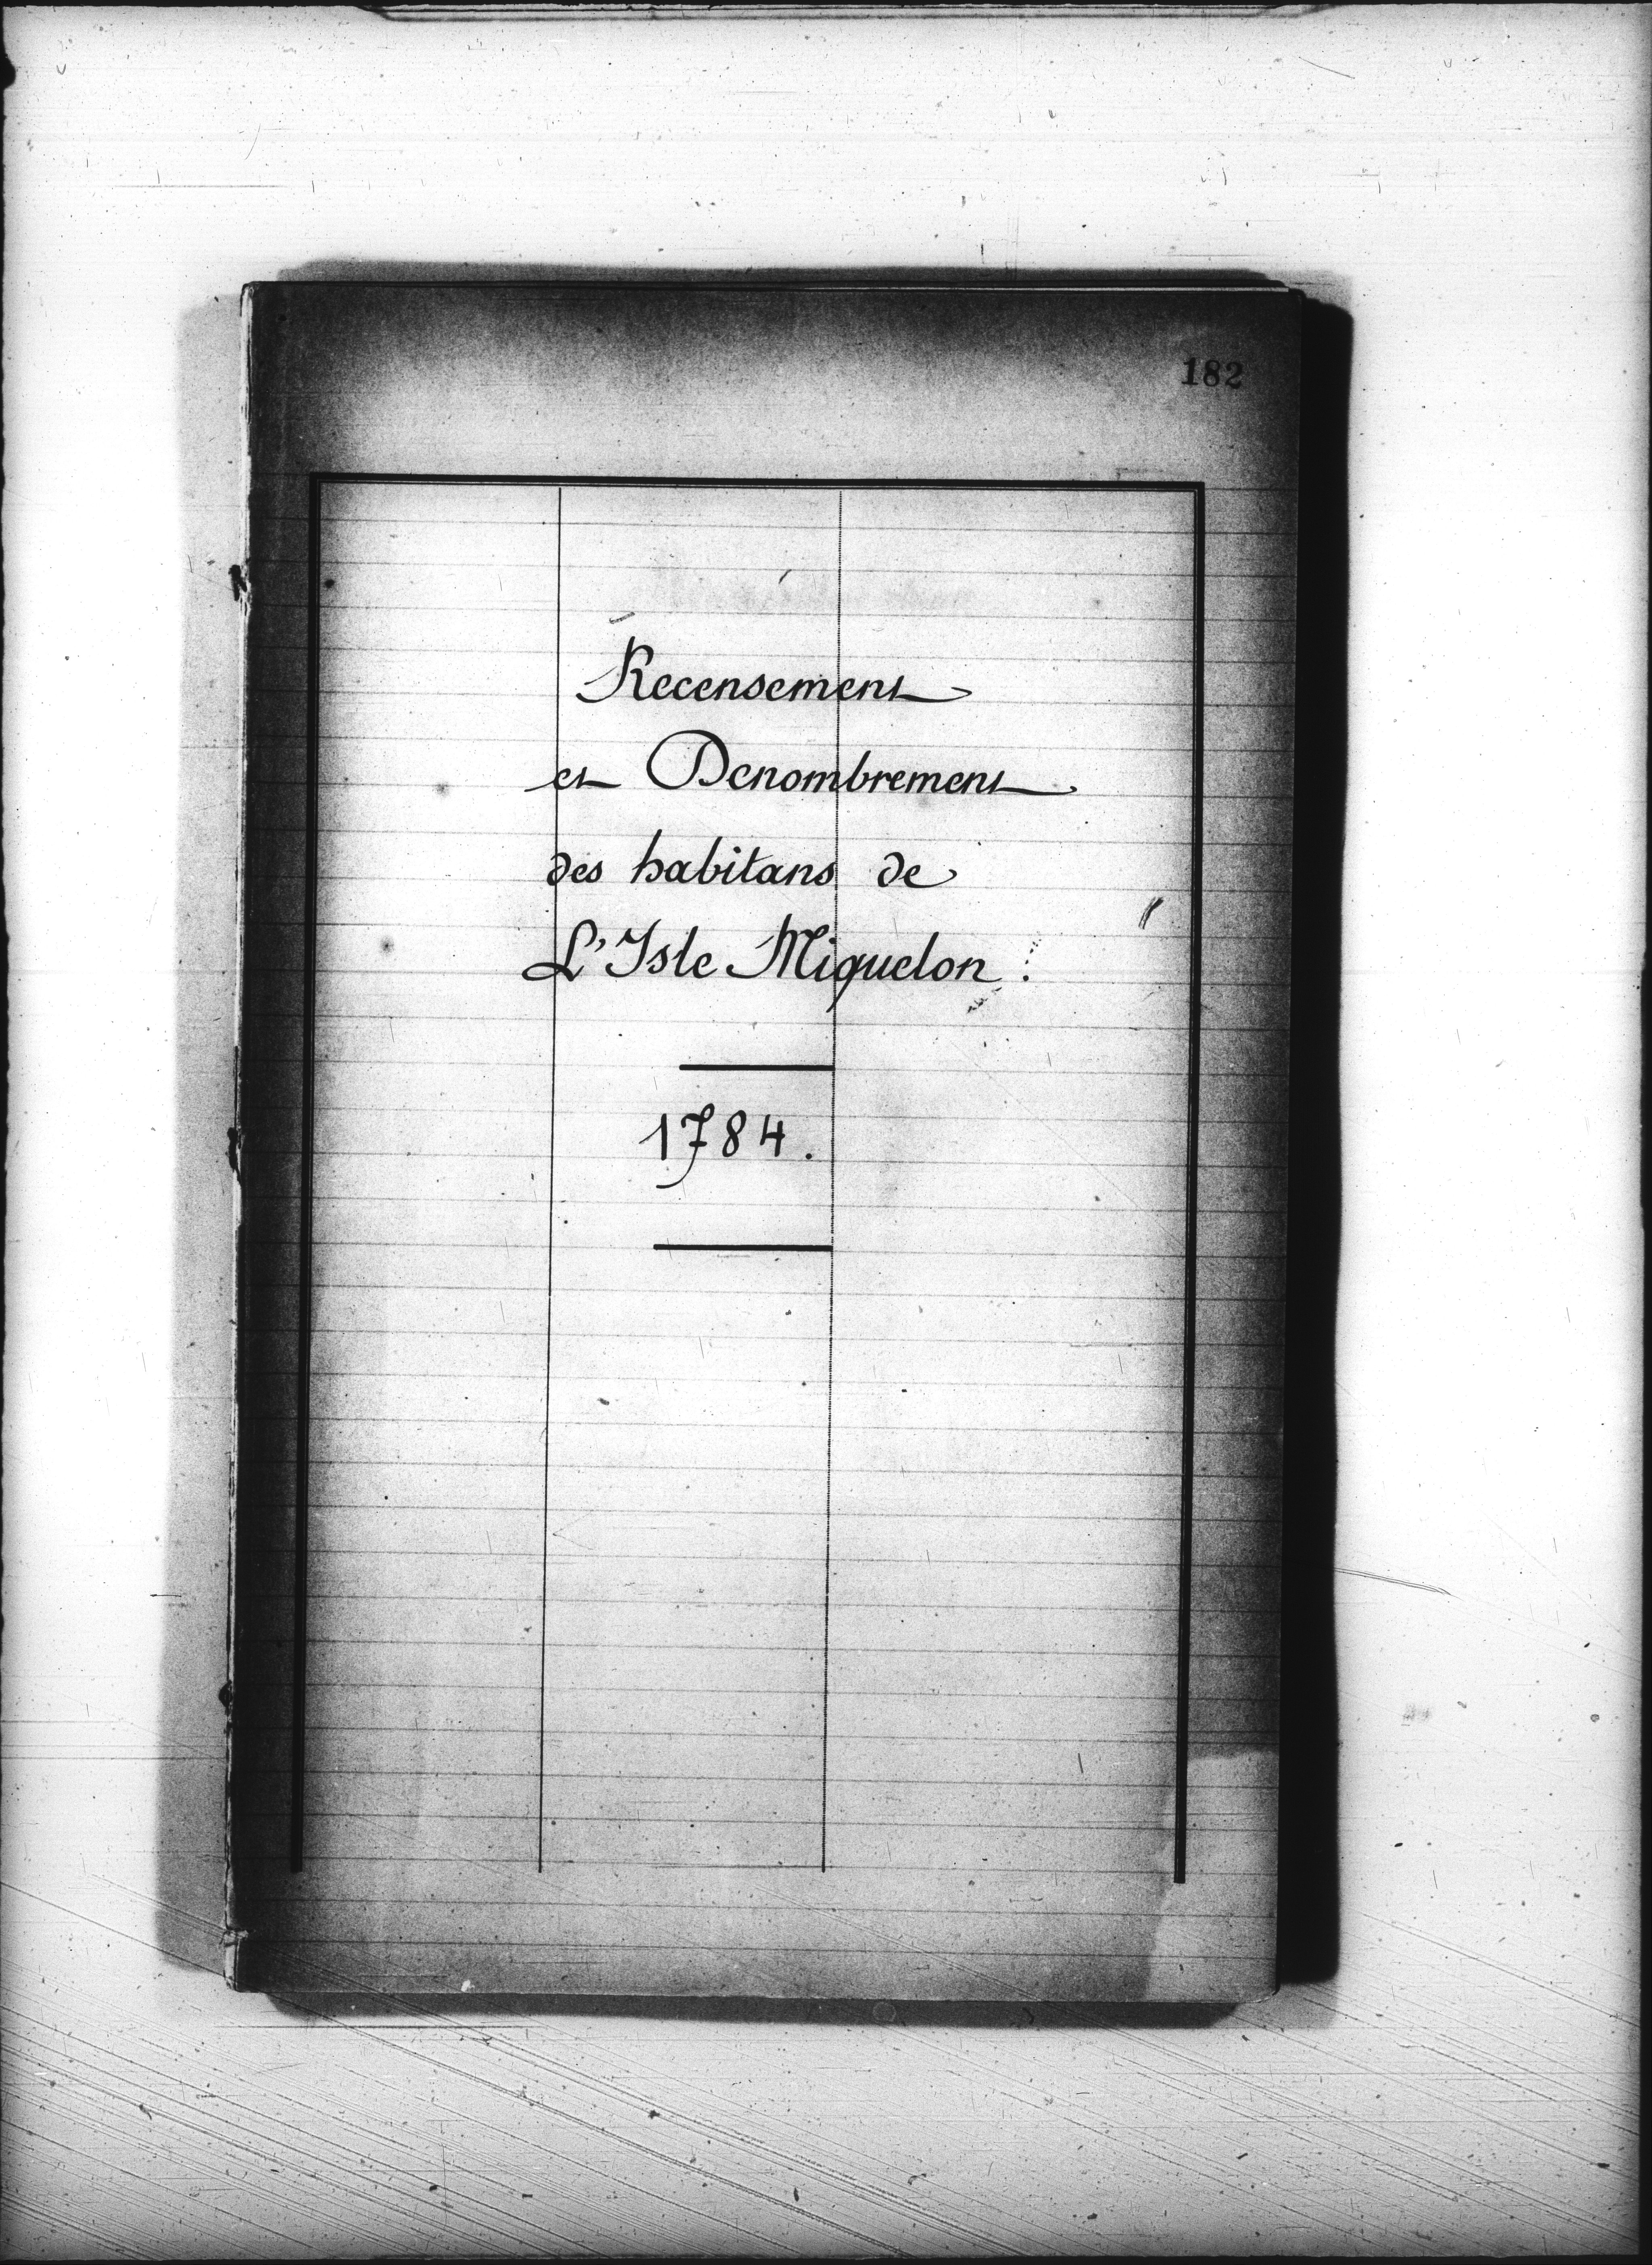 182
Recensement
et Denombrement
des habitans de
L'Isle Miquelon.
1784.